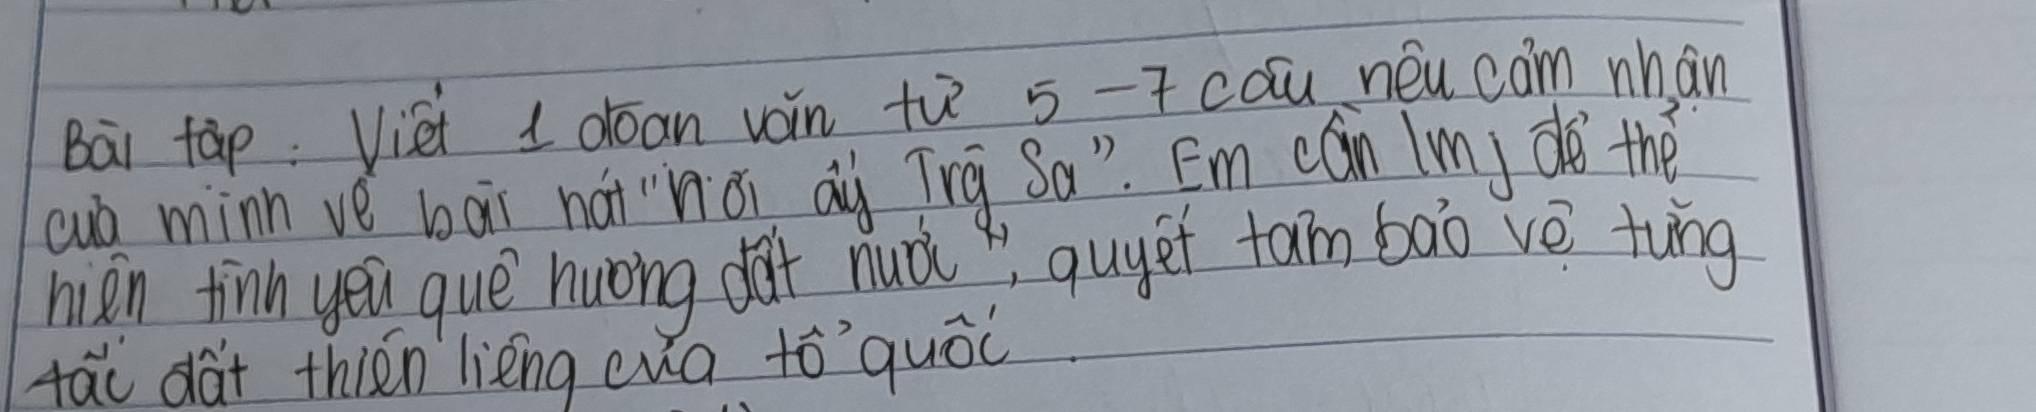 Bài tập: Viết 1 đoạn văn từ 5-7 câu nêu cảm nhận
của mình về bài hát "nơi ấy Trg Sa". Em cần lmj để thể
hiện tình yêu quê hương đất nước", quyết tâm bảo vệ từng
tấc đất thiên liêng của tổ quốc